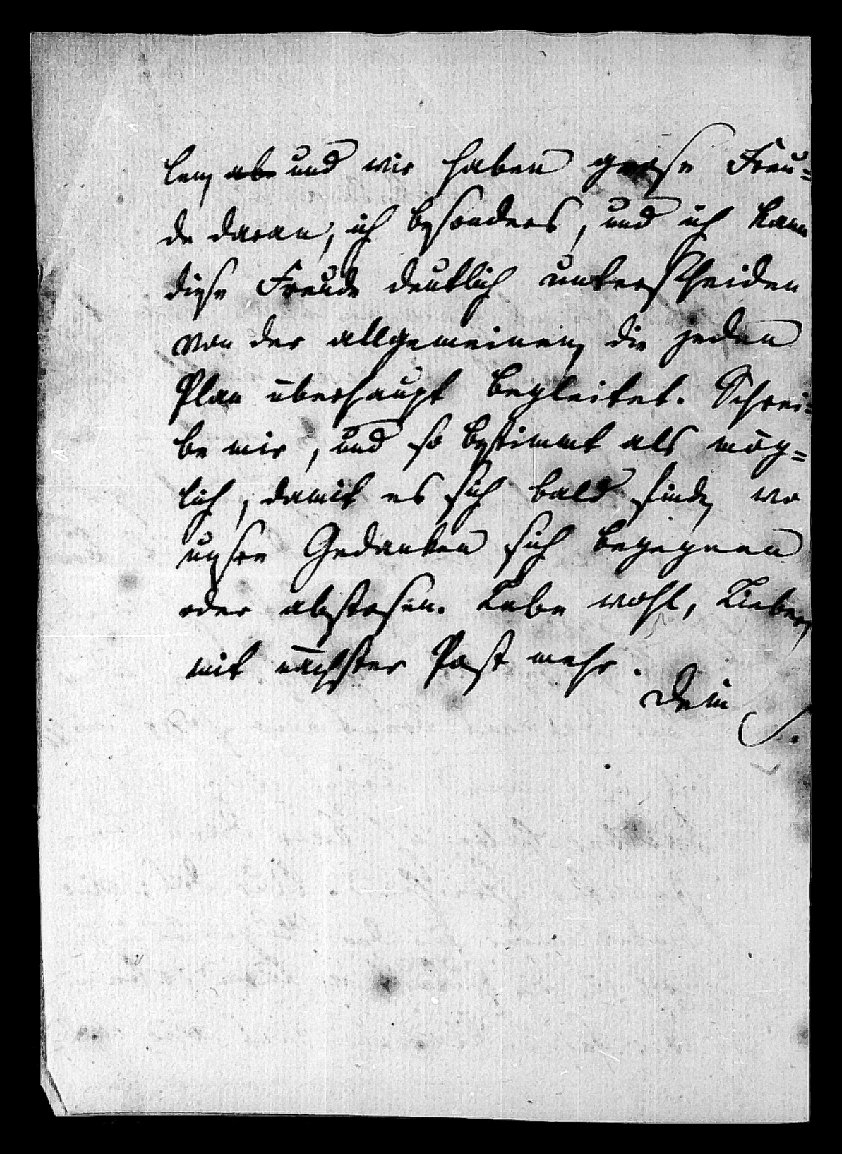 len, abe und wir haben grose Freu=
de daran, ich besonders, und ich kann
diese Freude deutlich unterscheiden
von der allgemeinen, die jeden
Plan überhaupt begleitet. Schrei=
be mir, und so bestimmt als mög=
lich, damit es sich bald finde, wo
unsre Gedanken sich begegnen
oder abstosen. Lebe wohl, Lieber,
mit nächster Post mehr.
Dein
S.